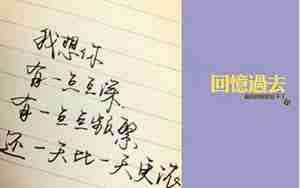 我想你
有一点点深
有一点点频繁
还一天比一天更浓
回憶過去